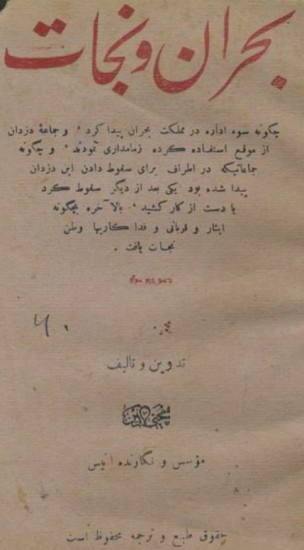 بحران و نجات
چگونه سوء اداره در مملکت بحران پیدا کرد، و جماعهٔ دزدان
از موقع استفاده کرده زمامداری نمودند، و چگونه
جماعاتیکه در اطراف برای سقوط دادن این دزدان
پیدا شده بود یکی بعد از دیگر سقوط کرد
یا دست از کار کشید، بالاخره چگونه
ایثار و قربانی و فداکاریها وطن
نجات یافت.
تدوین و تالیف
محی الدین
مؤسس و نگارنده انیس
حقوق طبع و ترجمه محفوظ است